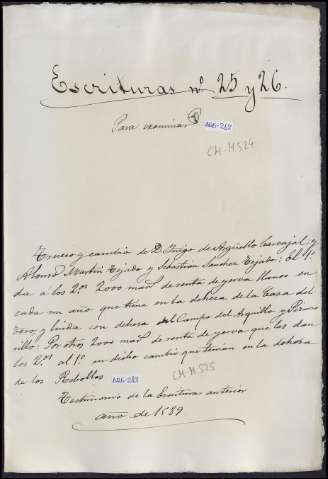 Escrituras nº 25 y 26.
Para examinar
A26-262
CM-H524
Trueco y cambio de D. Iñigo de Argüello Carvajal y
Alonso Martin Tejado y Sebastian Sanchez Tejado: El 1º
da á los 2ºs 2000 mars de renta de yerva llanos en
cada un año que tiene en la dehesa de la Casa del
Zoro y linda con dehesa del Campo del Aguila y
Por otros 2000 mars de renta de yerva que les dan
los 2ºs al 1º en dicho cambio que tenian en la dehesa
de los
A26-263
CM-H525
Testimonio de la Escritura anterior
año de 1589